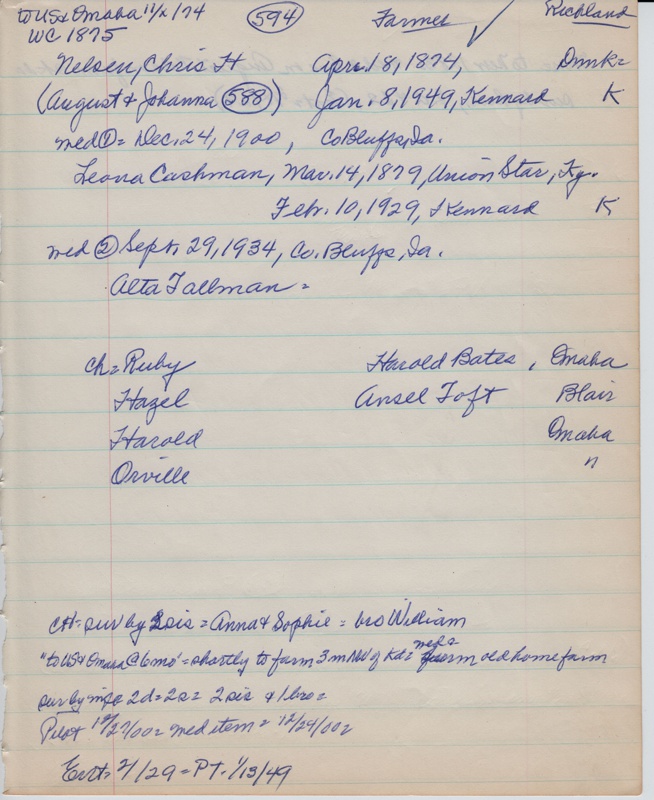 to US & Omaha 11/2/74 594 Farmer ✓ Richland
WC 1875
Nelsen, Chris H Apr. 18, 1874, Dnmk=
(August & Johanna 588) Jan. 8, 1949, Kennard K
med ① = Dec. 24, 1900, Co Bluffs, Ia.
Leona Cashman, Mar. 14, 1879, Union Star, Ky.
Feb. 10, 1929, Kennard K
med ② Sept. 29, 1934, Co. Bluffs, Ia.
Alta Tallman =
ch = Ruby Harold Bates, Omaha
Hazel Ansel Toft Blair
Harold Omaha
Orville "
CH = sur by 2 sis = Anna & Sophie = bro William
"to US & Omaha @ 6 mo" = shortly to farm 3 m NW of Kd = med = farm old home farm
sur by 2d = 2s = 2 sis & 1 bro =
Pilot 12/27/00 = med item = 12/24/00 =
Ent = 2/29 = PT. 1/13/49